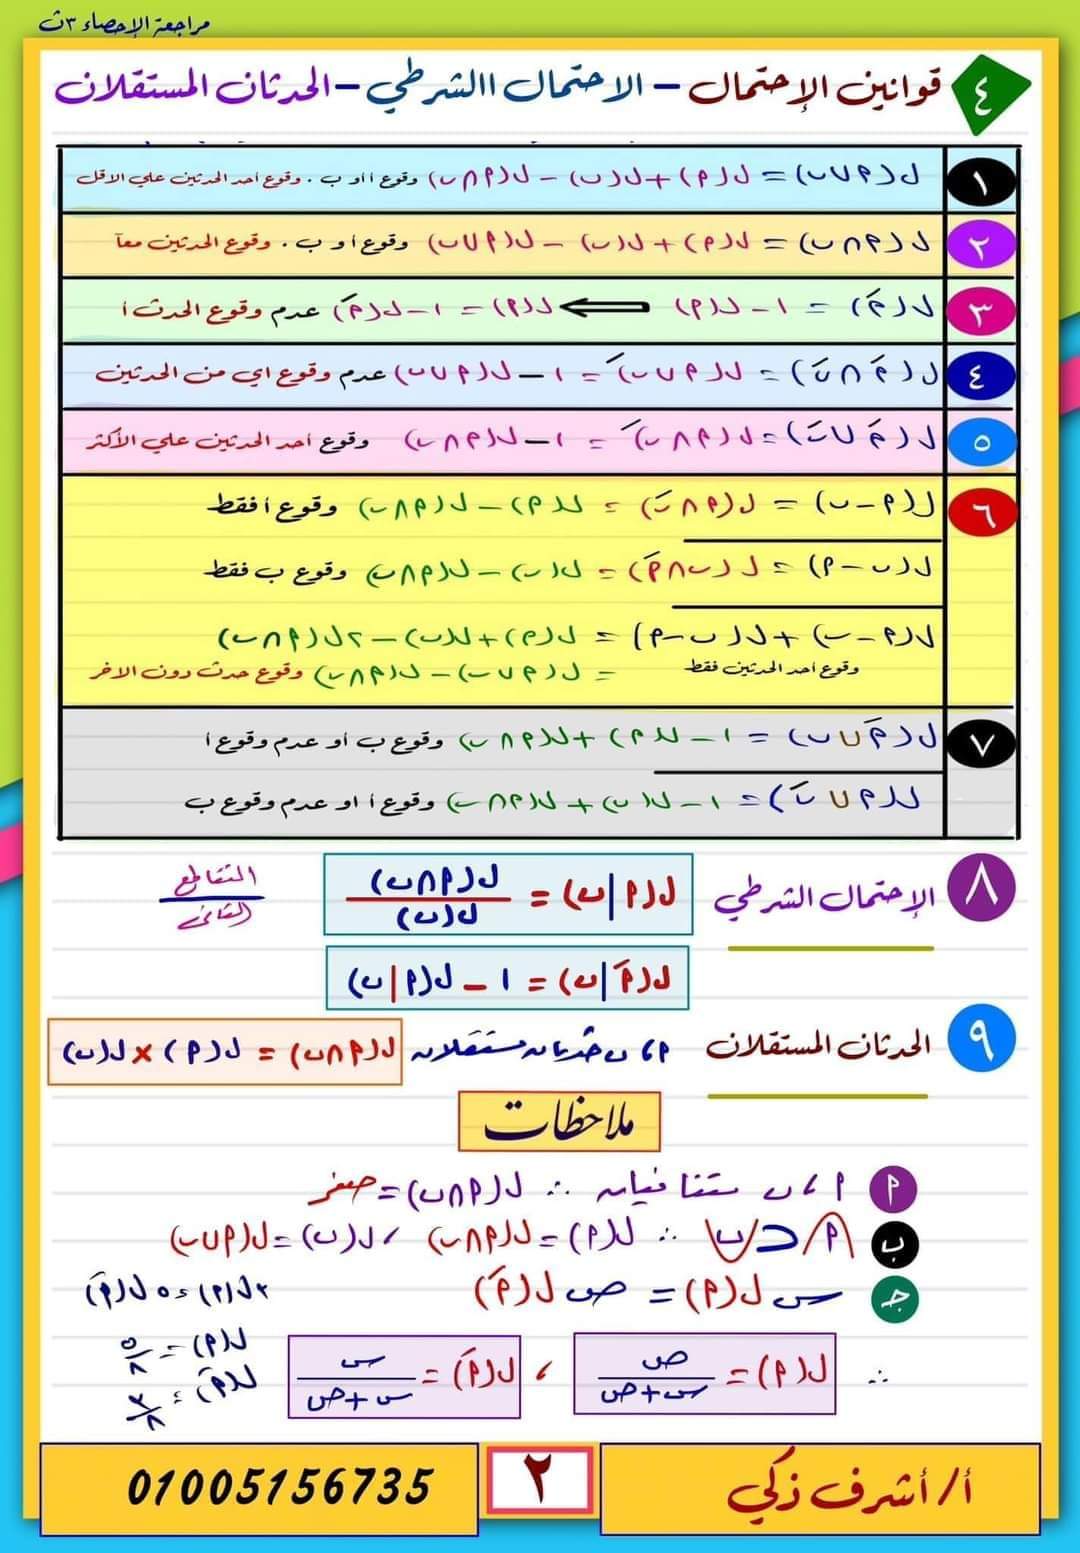 مراجعة الإحصاء ٣ث
٤ قوانين الإحتمال – الاحتمال االشرطي – الحدثان المستقلان
١ ل(أ∪ب) = ل(أ) + ل(ب) – ل(أ∩ب) وقوع أ أو ب . وقوع أحد الحدثين علي الاقل
٢ ل(أ∩ب) = ل(أ) + ل(ب) – ل(أ∪ب) وقوع أ و ب . وقوع الحدثين معاً
٣ ل(أَ) = ١ – ل(أ) ⟸ ل(أ) = ١ – ل(أَ) عدم وقوع الحدث أ
٤ ل(أَ∩بَ) = ل(أ∪ب)َ = ١ – ل(أ∪ب) عدم وقوع اي من الحدثين
٥ ل(أَ∪بَ) = ل(أ∩ب)َ = ١ – ل(أ∩ب) وقوع أحد الحدثين علي الأكثر
٦ ل(أ – ب) = ل(أ∩بَ) = ل(أ) – ل(أ∩ب) وقوع أ فقط
ل(ب – أ) = ل(ب∩أَ) = ل(ب) – ل(أ∩ب) وقوع ب فقط
ل(أ – ب) + ل(ب – أ) = ل(أ) + ل(ب) – ٢ل(أ∩ب)
وقوع أحد الحدثين فقط = ل(أ∪ب) – ل(أ∩ب) وقوع حدث دون الاخر
٧ ل(أَ∪ب) = ١ – ل(أ) + ل(أ∩ب) وقوع ب أو عدم وقوع أ
ل(أ∪بَ) = ١ – ل(ب) + ل(أ∩ب) وقوع أ او عدم وقوع ب
٨ الإحتمال الشرطي ل(أ|ب) = ل(أ∩ب) / ل(ب) التقاطع / الثانى
ل(أَ|ب) = ١ – ل(أ|ب)
٩ الحدثان المستقلان أ ، ب حدثان مستقلان ل(أ∩ب) = ل(أ) × ل(ب)
ملاحظات
أ أ ، ب متنافيان ∴ ل(أ∩ب) = صفر
ب أ ⊂ ب ∴ ل(أ) = ل(أ∩ب) ، ل(ب) = ل(أ∪ب)
ج س ل(أ) = ص ل(أَ) ٣ل(أ) = ٥ل(أَ)
∴ ل(أ) = ص / س + ص ، ل(أَ) = س / س + ص ل(أ) = ٥/٨
ل(أَ) = ٣/٨
أ/ أشرف زكي ٢ 01005156735